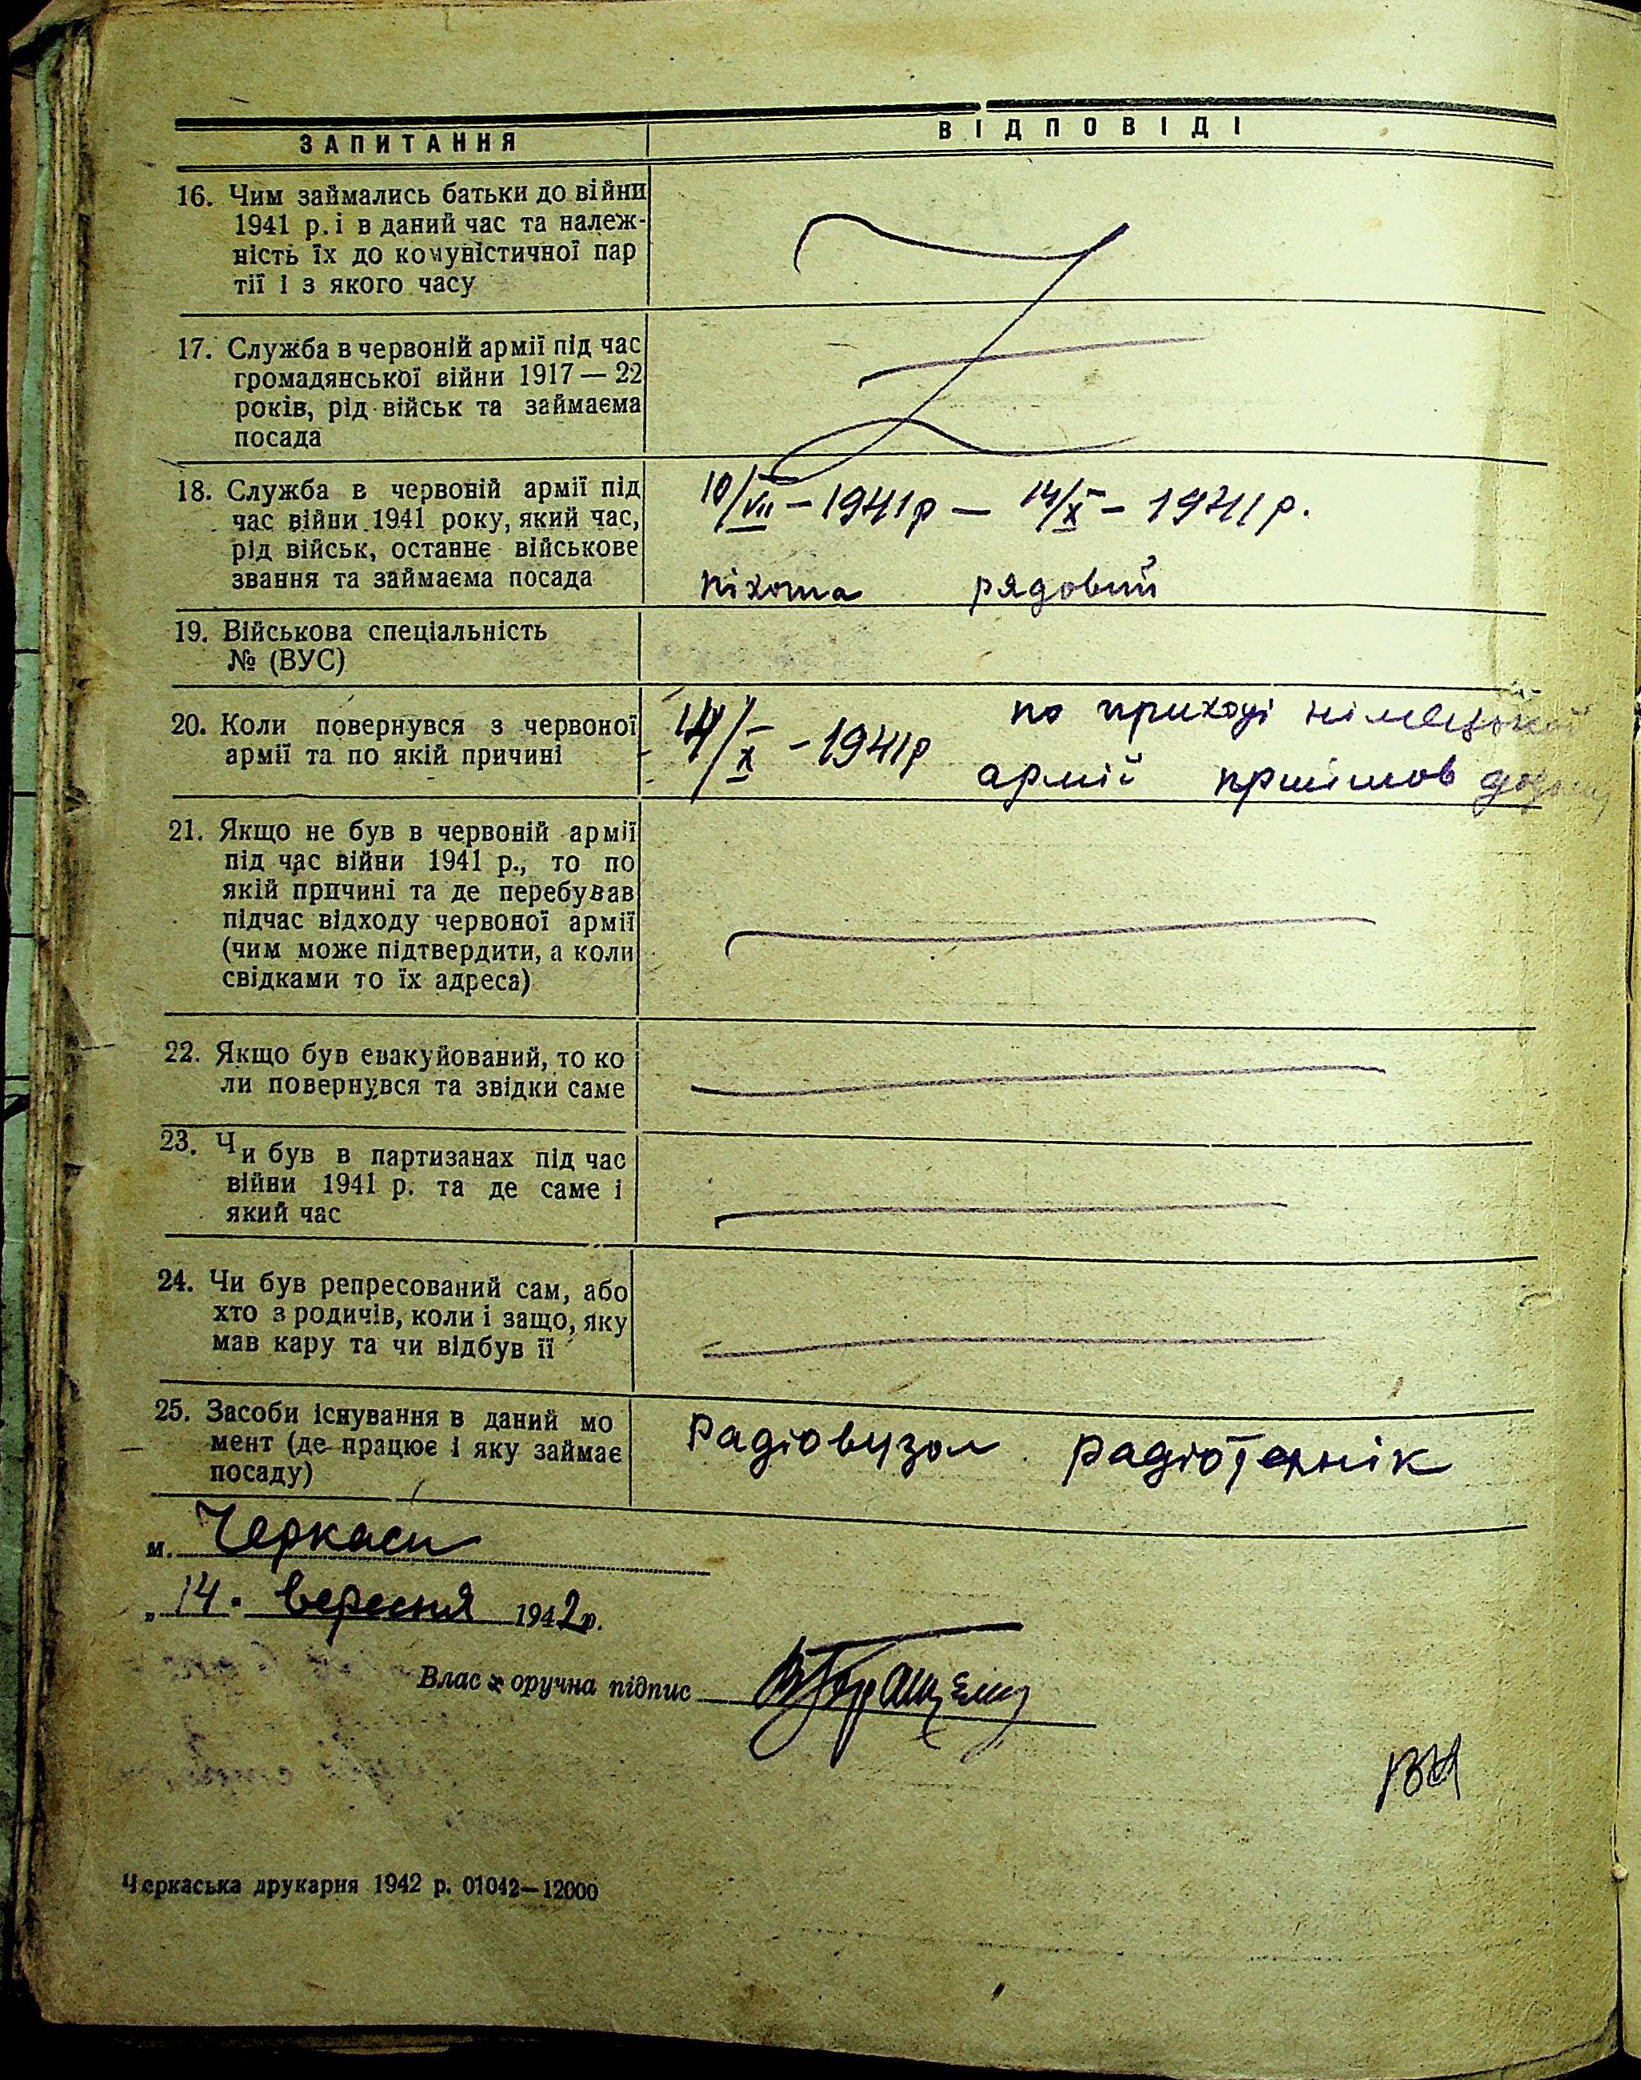 ЗАПИТАННЯ
ВІДПОВІДІ
16. Чим займались батьки до війни
1941 р. і в даний час та належ-
ність їх до комуністичної пар
тії і з якого часу
17. Служба в червоній армії під час
громадянської війни 1917 — 22
років, рід військ та займаєма
посада
18. Служба в червоній армії під
час війни 1941 року, який час,
рід військ, останнє військове
звання та займаєма посада
10/VII – 1941 р – 14/X – 1941 р.
піхота рядовий
19. Військова спеціальність
№ (ВУС)
20. Коли повернувся з червоної
армії та по якій причині
14/X – 1941р по приході німецької
армії прийшов додому
21. Якщо не був в червоній армії
під час війни 1941 р., то по
якій причині та де перебував
підчас відходу червоної армії
(чим може підтвердити, а коли
свідками то їх адреса)
22. Якщо був евакуйований, то ко
ли повернувся та звідки саме
23. Чи був в партизанах під час
війни 1941 р. та де саме і
який час
24. Чи був репресований сам, або
хто з родичів, коли і защо, яку
мав кару та чи відбув її
25. Засоби існування в даний мо
мент (де працює і яку займає
посаду)
Радіовузол радіотехнік
м. Черкаси
„14. вересня 1942 р.
Власноручна підпис
Черкаська друкарня 1942 р. 01042—12000